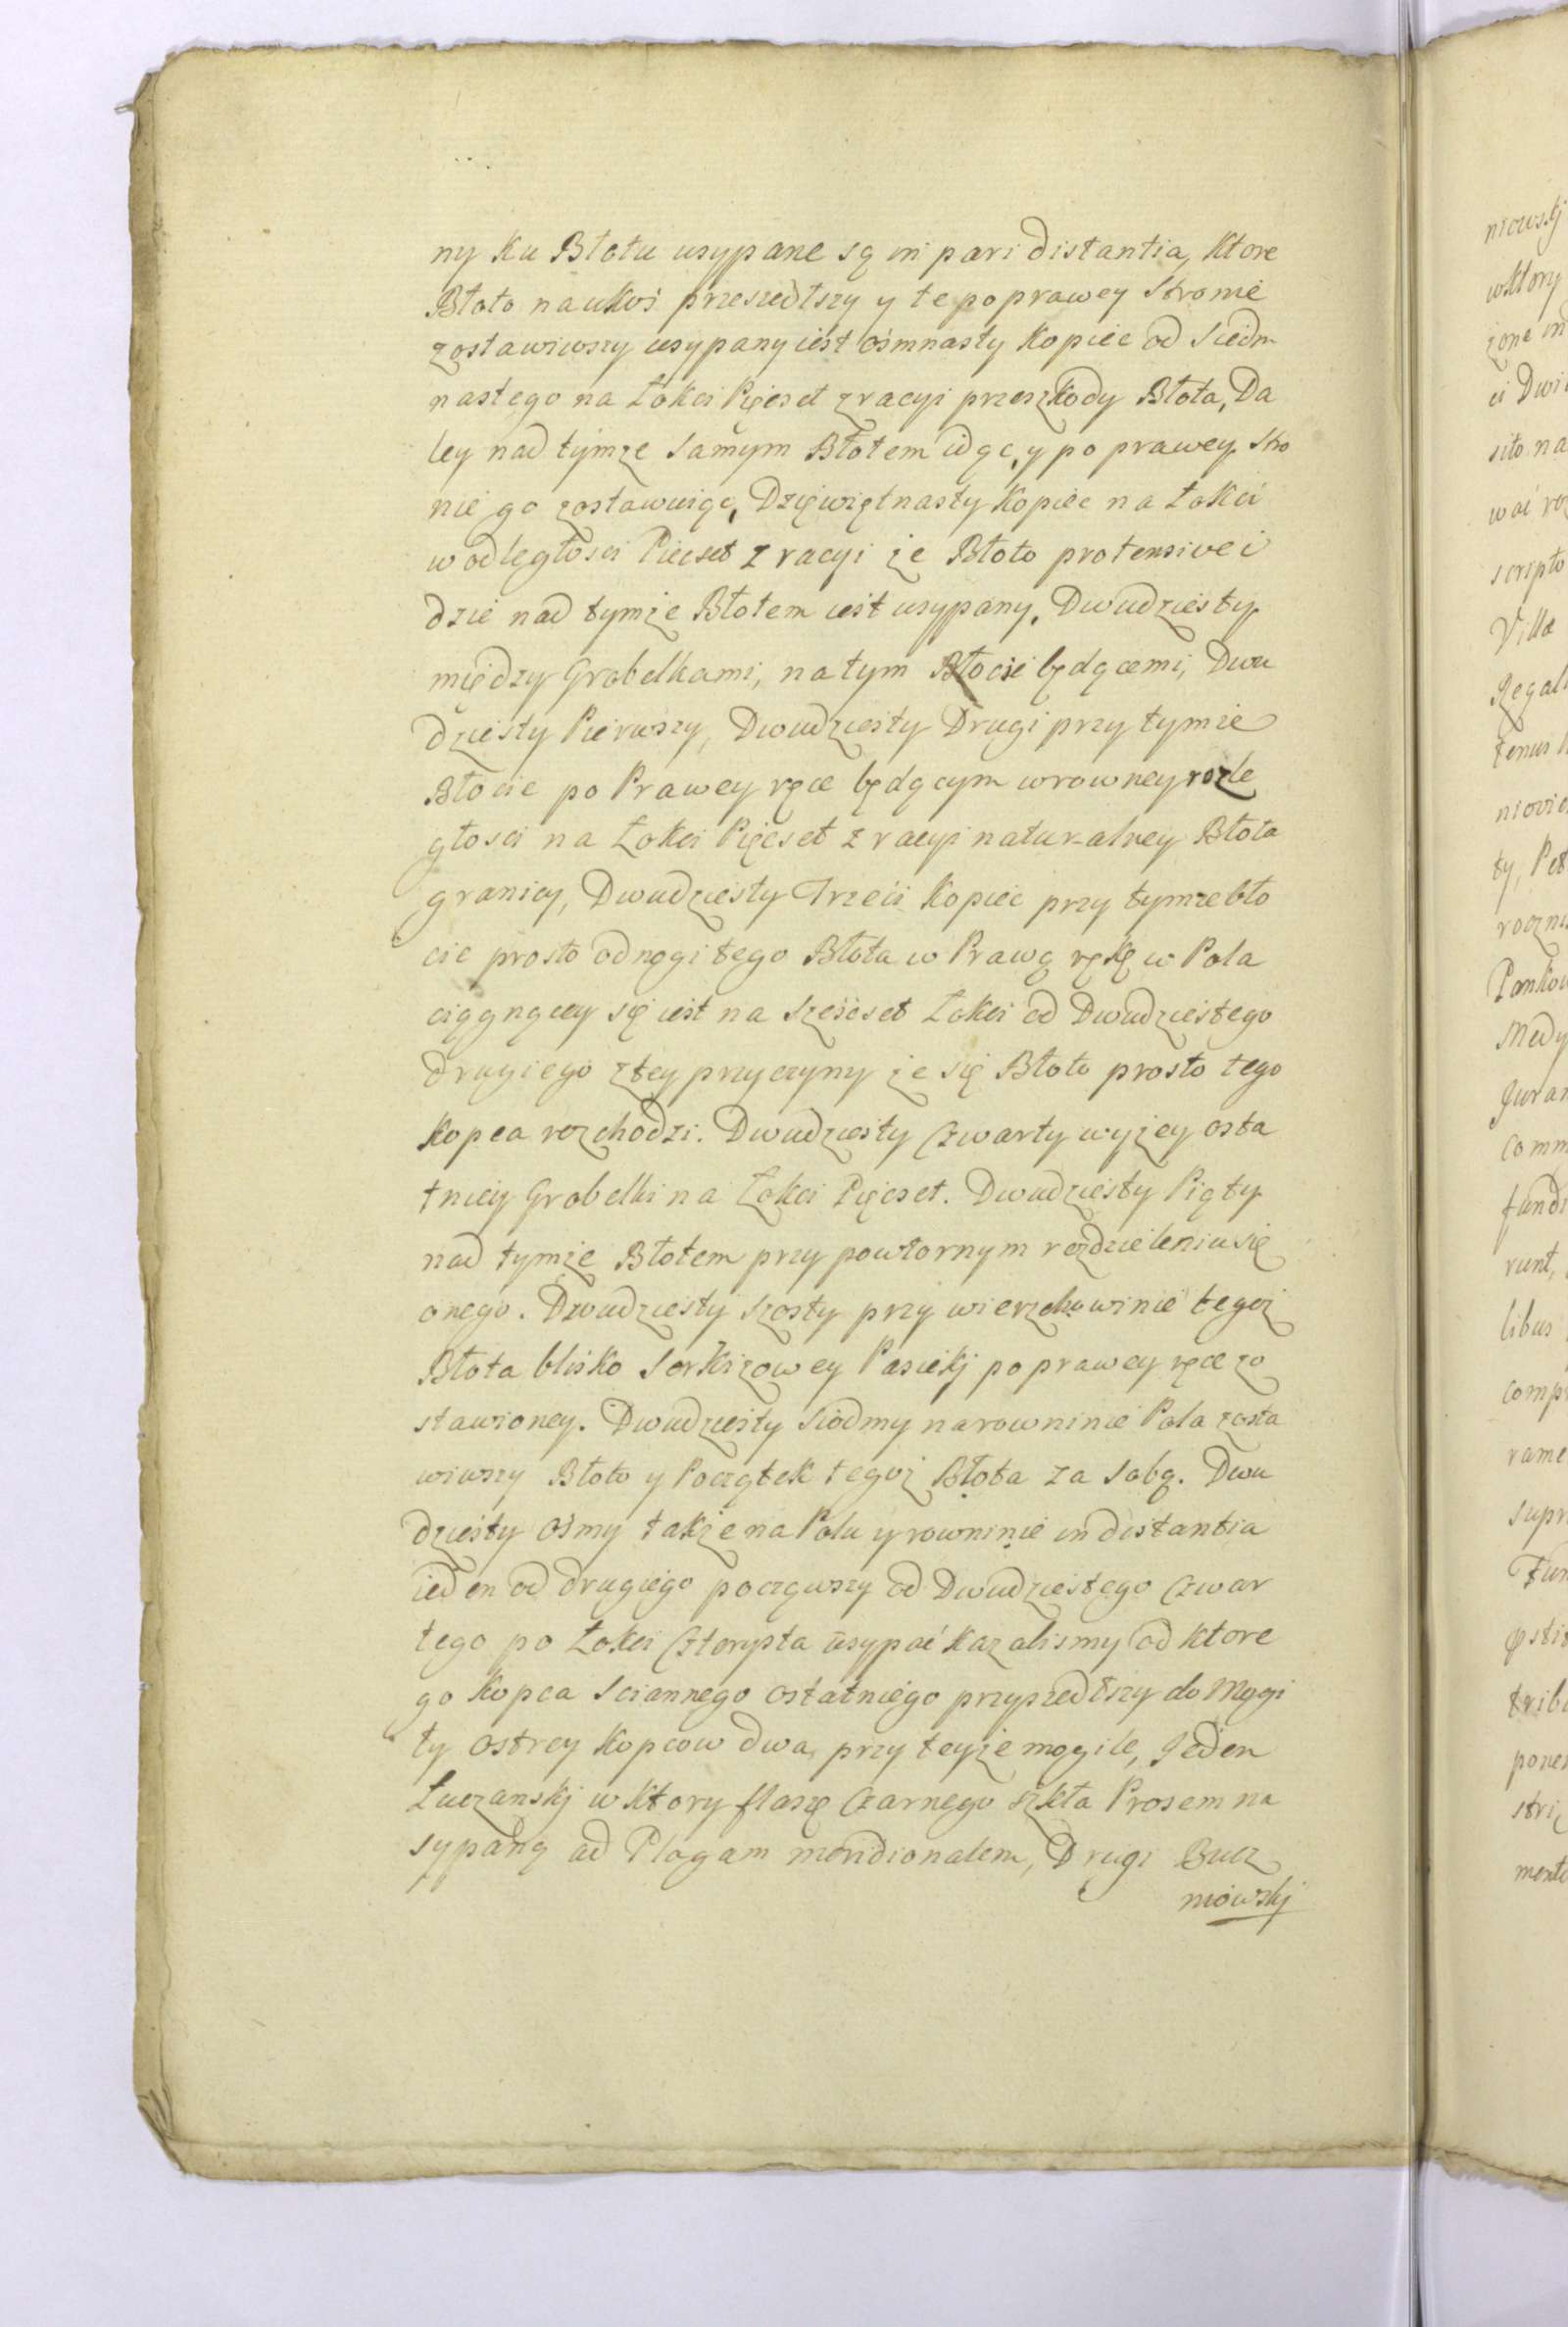 ny Ku Błotu usypane są in pari distantia, Ktore
Błoto naukoś przeszedłszy y te po prawey Stronie
zostawiwszy usypany iest ośmnasty Kopiec od Siedm
nastego na Łokci Pięcset z racyi przeszkody Błota, Da
ley nad tymże Samym Błotem idąc, y po prawey Stro
nie go zostawuiąc, Dziewiętnasty Kopiec na Łokci
w odległosci Piecset z racyi że Błoto protensive i
dzie nad tymże Błotem iest usypany, Dwudziesty
między Grobelkami, na tym Błocie będącemi, Dwu
dziesty Pierwszy, Dwudziesty Drugi przy tymże
Błocie po Prawey ręce będącym w rowney rozle
głosci na Łokci Pięcset z racyi naturalney Błota
granicy, Dwudziesty Trzeci Kopiec przy tymże bło
cie prosto odnogi tego Błota w Prawą rękę w Pola
ciągnącey się iest na Sześcset Łokci od Dwudziestego
drugiego z tey przyczyny że się Błoto prosto tego
Kopca rozchodzi. Dwudziesty Czwarty wyżey osta
tniey Grobelki na Łokci Pięcset. Dwudziesty Piąty
nad tymże Błotem przy powtornym rozdzieleniu się
onego. Dwudziesty Szosty przy wierzchowinie tegoż
Błota blisko Serkizowey Pasiekj po prawey ręce zo
stawioney. Dwudziesty Siodmy na rowninie Pola zosta
wiwszy Błoto y Początek tegoż Błota za Sobą. Dwu
dziesty Osmy także na Polu y rowninie in distantia
ieden od drugiego począwszy od Dwudziestego Czwar
tego po Łokci Czterysta usypać Kazalismy od Ktore
go Kopca Sciannego ostatniego przyszedłszy do Mogi
ły ostrey Kopcow dwa przy teyże mogile, Jeden
Łuczanskj w Ktory flaszę Czarnego szkła Prosem na
sypaną ad Plagam meridionalem, Drugi Bucz
niowskj
niowskj
wktory
żone in
ci Dwi
siło na
wać roz
scripto
Villæ
Regali
tenus
niovie
ty, Pet
roczni
Pankow
Medy
Juran
Comm
fundi
runt,
libus
comp
rame
supr
Fun
tribu
poner
stri